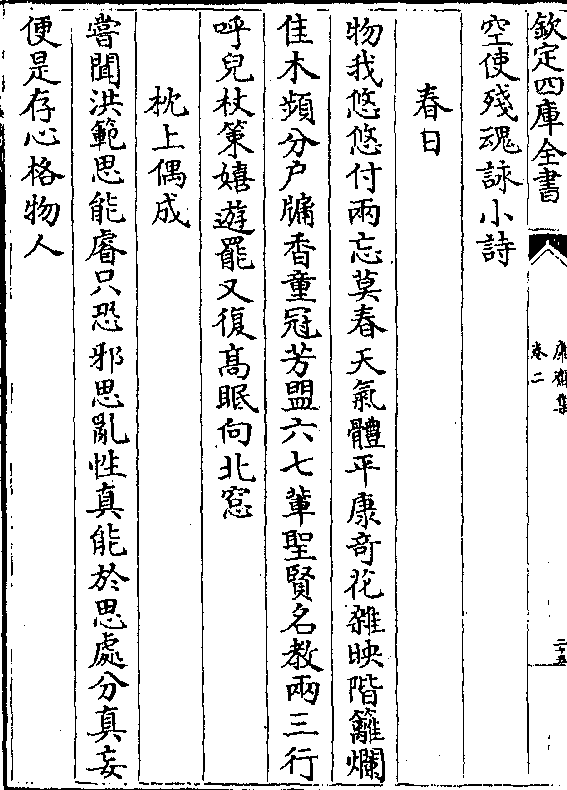 欽定四庫全書
卷二
空使殘魂詠小詩
春日
物我悠悠付兩忘莫春天氣體平康奇花雜映階籬爛
佳木頻分户牖香童冠芳盟六七輩聖賢名教兩三行
呼兒杖策嬉遊罷又復髙眠向北窓
枕上偶成
嘗聞洪範思能睿只恐邪思亂性真能於思處分真妄
便是存心格物人